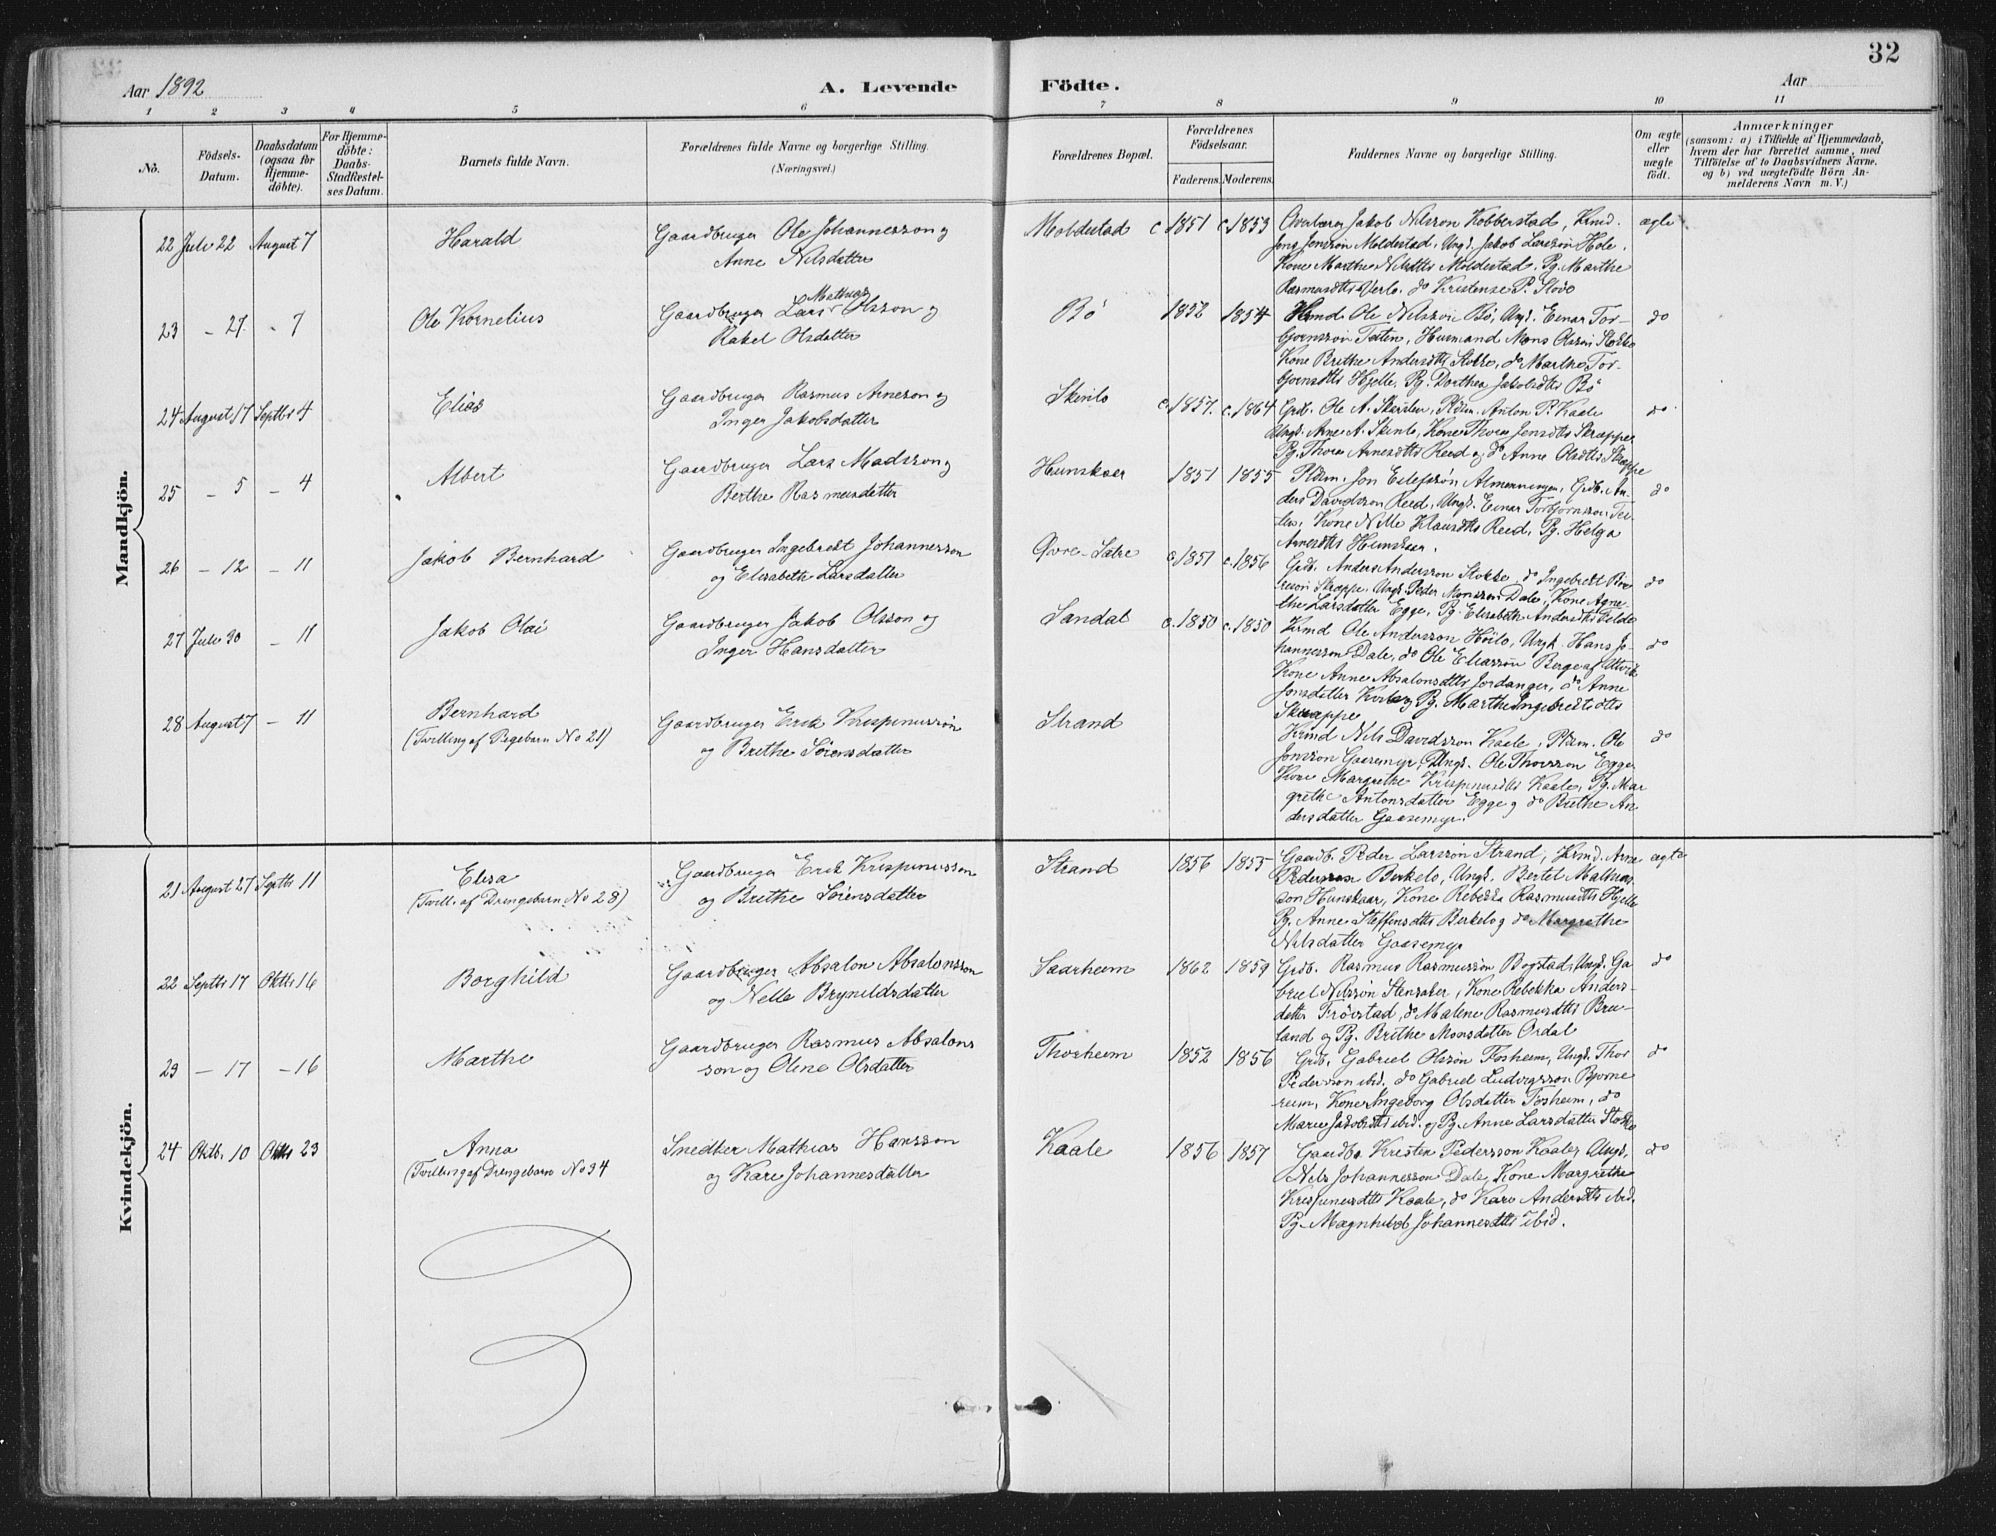 32
Aar 1892
A. Levende
Födte.
Aar
1 2 3 4 5 6 7 8 9 10 11
No.
Födsels-Datum.
Daabsdatum (ogsaa for Hjemme-döbte).
For Hjemme-döbte: Daabs-Stadfæstel-ses Datum.
Barnets fulde Navn.
Forældrenes fulde Navne og borgerlige Stilling.
(Næringsvei.)
Forældrenes Bopæl.
Forældrenes Födselsaar.
Faderens. Moderens.
Faddernes Navne og borgerlige Stilling.
Om ægte eller uægte födt.
Anmærkninger
(saasom: a) i Tilfælde af Hjemmedaab,
hvem der har forrettet samme, med
Tilföielse af to Daabsvidners Navne.
og b) ved uægtefödte Börn An-
melderens Navn m. V.)
Mandkjön.
22 Juli 22 August 7 Harald
Gaardbruger Ole Johannesson og
Anne Nilsdatter
Moldestad c. 1851 c. 1853
Jakob Nilsson Kobberstad, Kmd.
Jens Jonsson Moldestad, Ungk. Jakob Larsson Hole,
Kone Marthe Nilsdtts Moldestad, Pg. Marthe
Rasmusdtts
ægte
23 - 27 - 7 Ole Kornelius
Gaardbruger Lars Mathias Olsson og
Rakel Olsdatter
Bö 1852 1854
Kmd. Ole Nilsson Bö, Ungk. Einar Tor-
björnsson Teiten, Husmand Mons Olsson Stokke
Kone Brithe Andersdtts Stokke, do Marthe Tor-
björnsdtts Hjelle, Pg. Dorthea Jakobsdtts Bö
do
24 August 17 Septbr 4 Elias
Gaardbruger Rasmus Arnesson og
Inger Jakobsdatter
Skinlo c. 1857. c. 1864
Grdb. Ole A. Skinlo, Pldsm. Anton P. Kaale
Ungk. Arne A. Skinlo, Kone Thora Jensdtts Skrappe
Pg. Thora Arnesdtts Reed og do Anne Olsdtts Skrappe
do
25 - 5 - 4 Albert
Gaardbruger Lars Madsson og
Berthe Rasmusdatter
Hunskaar 1851 1855
Pldsm. Jon Eilefssön Almenningen, Grdb. An-
ders Davidsson Reed, Ungk. Einar Torbjörnsson Tei-
ten, Kone Nille Klausdtts Reed, Pg. Helga
Arnesdtts Hunskaar.
do
26 - 12 - 11 Jakob Bernhard
Gaardbruger Ingebrekt Johannesson
og Elisabeth Larsdatter
Övre-Sætre c. 1851 c. 1856
Grdb. Anders Andersson Stokke, do Ingebrekt
Skrappe, Ungk. Peder Monsson Dale, Kone Agne-
the Larsdatter Egge, Pg. Elisabeth Andersdtts
do
27 Juli 30 - 11 Jakob Olai
Gaardbruger Jakob Olsson og
Inger Hansdatter
Sandal c. 1850 c. 1850
Kmd Ole Andersson Höilo, Ungk. Hans Jo-
hannesson Dale, do Ole Eliassön Berge af Utvik
Kone Anne Absalonsdtts Jordanger, do Anne
Jonsdatter og Pg. Marthe Ingebrektsdtts
Skrappe
do
28 August 7 - 11 Bernhard
(Tvilling af Pigebarn No 21)
Gaardbruger Erik Krispinussön
og Brithe Sörensdatter
Strand
Kmd Nils Davidsson Kaale, Pldsm. Ole
Jonsson Gaasemyr, Ungk. Ole Thorsson Egge
Kone Margrethe Krispinusdtts Kaale, Pg. Mar
grethe Antonsdatter Egge og do Brithe An
dersdatter Gaasemyr.
do
Kvindekjön.
21 August 27 Septbr 11 Elisa
(Tvill. af Drengebarn No 28)
Gaardbruger Erik Krispinusson
og Brithe Sörensdatter
Strand 1856 1855
Gaardb. Peder Larsson Strand, Kmd. Arne
Pedersson Birkelo, Ungk. Bertel Mathias
son Hunskaar, Kone Rebekka Rasmusdtts Hjelle
Pg. Anne Steffensdtts Birkelo og do Margrethe
Nilsdatter Gaasemyr
ægte
22 Septbr 17 Oktbr 16 Borghild
Gaardbruger Absalon Absalonsson
og Nelle Brynildsdatter
Saarheim 1862 1859
Grdb. Rasmus Rasmussön Bogstad, Ungk. Ga
briel Nilssön Stensaker, Kone Rebekka Anders-
datter Fröistad, do Malene Rasmusdtts Bru-
land og Pg. Brithe Monsdatter Ordal
do
23 - 17 - 16 Marthe
Gaardbruger Rasmus Absalons
son og Oline Olsdatter
Thorheim 1852 1856
Grdb. Gabriel Olssön Fosheim, Ungk. Thor
Pedersson ibid. do Gabriel Ludvigsson Bjorne
reim, Kone Ingeborg Olsdatter Fosheim, do
Marie Jakobsdtts ibid. og Pg. Anne Larsdatter Stokke
do
24 Oktb. 10 Oktbr 23 Anna
(Tvilling af Drengebarn No 34
Snedker Mathias Hansson
og Kari Johannesdatter
Kaale 1856 1857
Gaardb. Kristen Pedersson Kaale, Ungk.
Nils Johannesson Dale, Kone Margrethe
Krispinusdtts Kaale, do Kari Andersdtts ibid.
Pg. Magnhild Johannesdtts ibid.
do